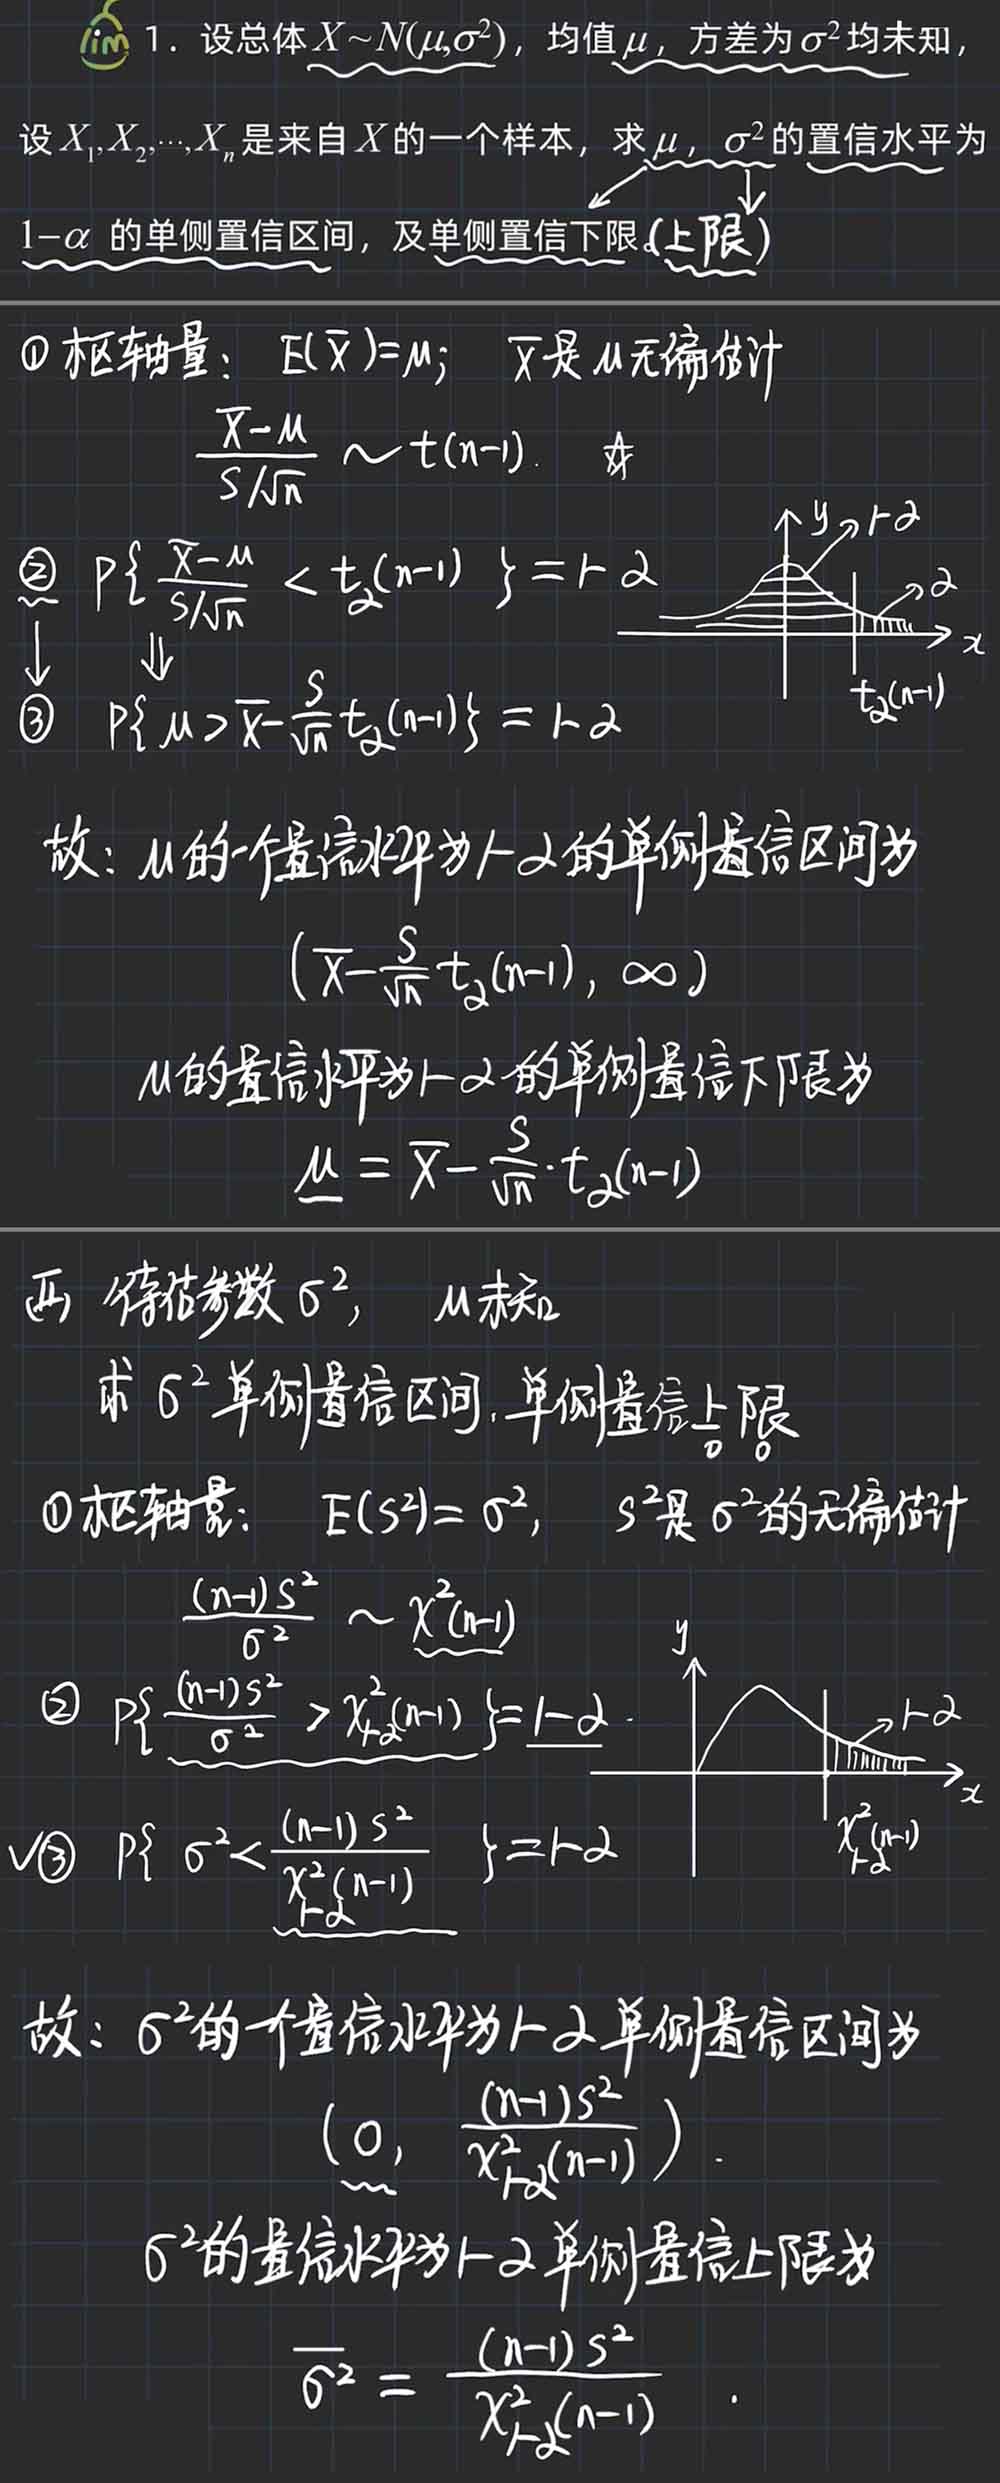 lim 1. 设总体X~N(μ,σ²)，均值μ，方差为σ²均未知，
设X₁,X₂,…,Xₙ是来自X的一个样本，求μ，σ²的置信水平为
1-α 的单侧置信区间，及单侧置信下限.(上限)
① 枢轴量： E(X̄)=μ； X̄是μ无偏估计
(X̄-μ)/(S/√n) ~ t(n-1). ☆
② P{ (X̄-μ)/(S/√n) < t_α(n-1) } = 1-α
y 1-α
α
x
t_α(n-1)
③ P{ μ > X̄ - S/√n t_α(n-1) } = 1-α
故：μ的一个置信水平为1-α的单侧置信区间为
( X̄ - S/√n t_α(n-1), ∞ )
μ的置信水平为1-α的单侧置信下限为
μ̲ = X̄ - S/√n · t_α(n-1)
(二) 待估参数σ²， μ未知
求σ²单侧置信区间.单侧置信上限
① 枢轴量： E(S²)=σ²， S²是σ²的无偏估计
(n-1)S²/σ² ~ χ²(n-1)
② P{ (n-1)S²/σ² > χ²_{1-α}(n-1) } = 1-α.
y
1-α
x
χ²_{1-α}(n-1)
✓③ P{ σ² < (n-1)S²/χ²_{1-α}(n-1) } = 1-α
故：σ²的一个置信水平为1-α单侧置信区间为
( 0, (n-1)S²/χ²_{1-α}(n-1) ).
σ²的置信水平为1-α单侧置信上限为
σ̅² = (n-1)S²/χ²_{1-α}(n-1).